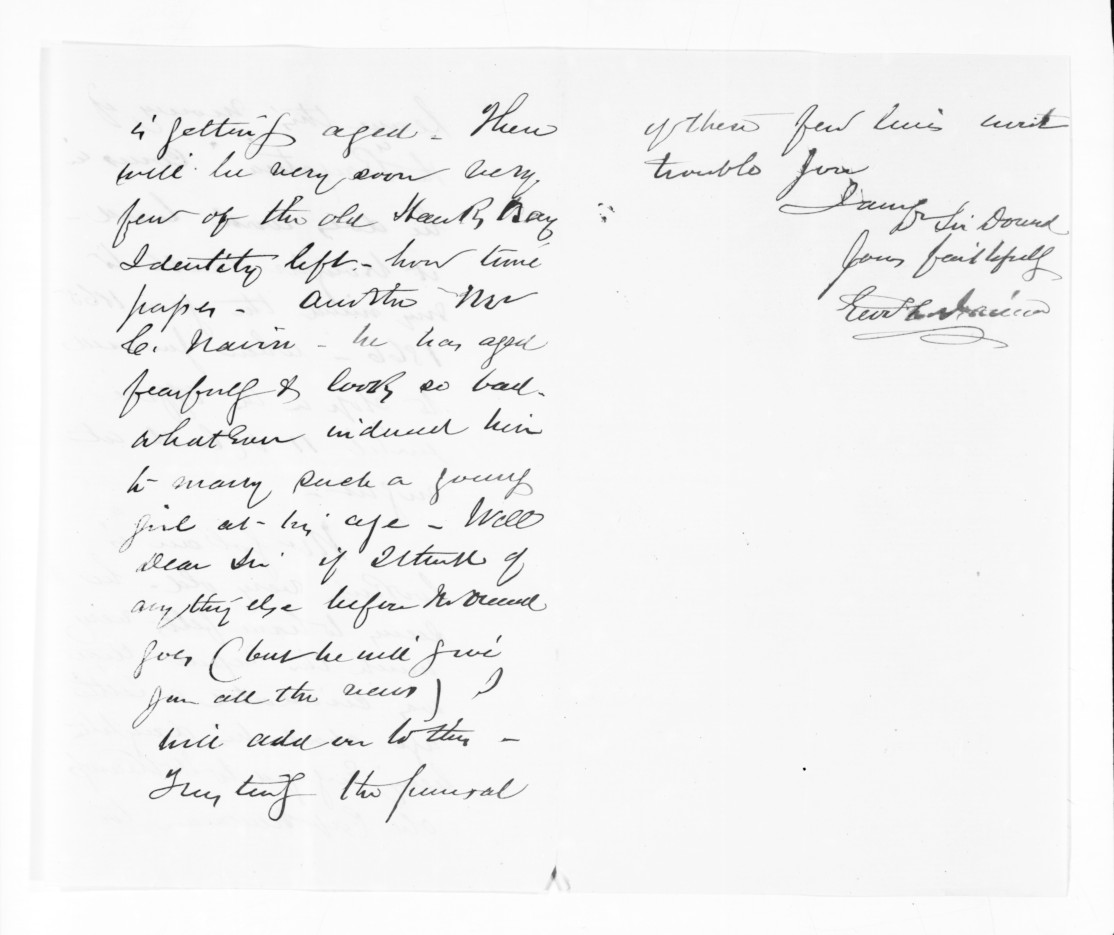 is getting aged - There
will be very soon very
few of the old Hawks Bay
Identity left - how time
passes - another Mr
C. Nairn - he has aged
fearfully & looks so bad -
whatever induced him
to marry such a young
girl at his age - Well
Dear Sir if I think of
anything else before Mr
goes (but he will give
you all the news) I
will add on to this -
Trusting the perusal
of these few lines wont
trouble you
I am
Dr Sir Donald
Yours faithfully